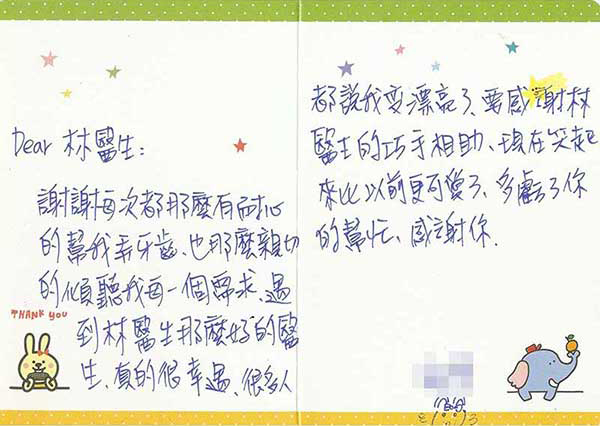 Dear 林醫生:
謝謝每次都那麼有耐心
的幫我弄牙齒、也那麼親切
的傾聽我每一個需求、遇
到林醫生那麼好的醫
生、真的很幸遇、很多人
THANK YOU
都說我变漂亮了、要感謝林
醫生的巧手相助、現在笑起
來比以前更可愛了、多虧了你
的幫忙、感謝你.